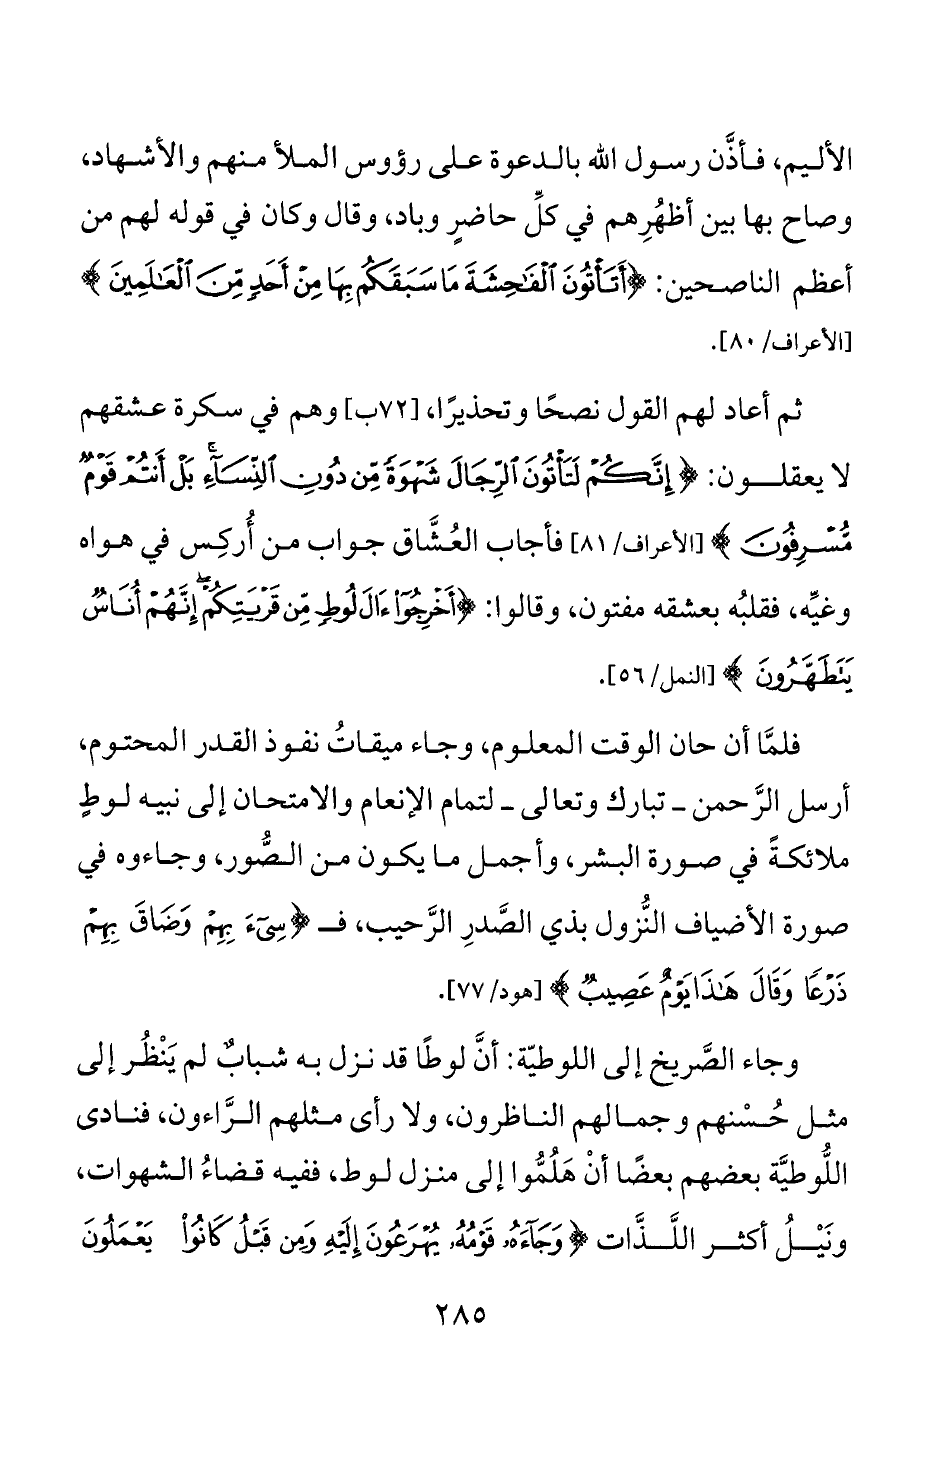 الأليم، فأذَّن رسول الله بالدعوة على رؤوس الملأ منهم والأشهاد،
وصاح بها بين أظهُرِهم في كلِّ حاضرٍ وباد، وقال وكان في قوله لهم من
أعظم الناصحين: ﴿أَتَأْتُونَ ٱلْفَٰحِشَةَ مَا سَبَقَكُم بِهَا مِنْ أَحَدٍ مِّنَ ٱلْعَٰلَمِينَ ﴾
[الأعراف/ ٨٠].
ثم أعاد لهم القول نصحًا وتحذيرًا، [٧٢ب] وهم في سكرة عشقهم
لا يعقلون: ﴿ إِنَّكُمْ لَتَأْتُونَ ٱلرِّجَالَ شَهْوَةً مِّن دُونِ ٱلنِّسَآءِ ۚ بَلْ أَنتُمْ قَوْمٌ
مُّسْرِفُونَ ﴾ [الأعراف/ ٨١] فأجاب العُشَّاق جواب من أُركِس في هواه
وغيِّه، فقلبُه بعشقه مفتون، وقالوا: ﴿أَخْرِجُوٓا۟ ءَالَ لُوطٍ مِّن قَرْيَتِكُمْ ۖ إِنَّهُمْ أُنَاسٌ
يَتَطَهَّرُونَ ﴾ [النمل/ ٥٦].
فلمَّا أن حان الوقت المعلوم، وجاء ميقاتُ نفوذ القدر المحتوم،
أرسل الرَّحمن ـ تبارك وتعالى ـ لتمام الإنعام والامتحان إلى نبيه لوطٍ
ملائكةً في صورة البشر، وأجمل ما يكون من الصُّور، وجاءوه في
صورة الأضياف النُّزول بذي الصَّدرِ الرَّحيب، فـ ﴿سِىٓءَ بِهِمْ وَضَاقَ بِهِمْ
ذَرْعًا وَقَالَ هَٰذَا يَوْمٌ عَصِيبٌ ﴾ [هود/ ٧٧].
وجاء الصَّريخ إلى اللوطيّة: أنَّ لوطًا قد نزل به شبابٌ لم يَنْظُر إلى
مثل حُسْنهم وجمالهم الناظرون، ولا رأى مثلهم الرَّاءون، فنادى
اللُّوطيَّة بعضهم بعضًا أنْ هَلُمُّوا إلى منزل لوط، ففيه قضاءُ الشهوات،
ونَيْلُ أكثر اللَّذات ﴿ وَجَآءَهُۥ قَوْمُهُۥ يُهْرَعُونَ إِلَيْهِ وَمِن قَبْلُ كَانُوا۟ يَعْمَلُونَ
٢٨٥